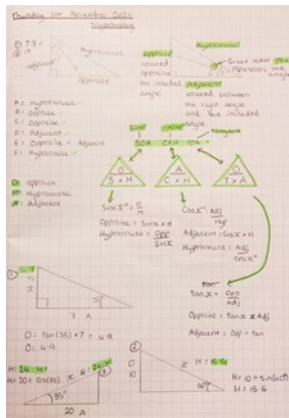 Thursday 11th November 2021
Trigonometry
① 7.3
② 17
Hypotenuse
adjacent
Opposite
Opposite
located
opposite
the included
angle.
Hypotenuse
Adjacent
located between
the right angle
and the included
angle.
A = Hypotenuse
B = Opposite
C = Opposite
D = Adjacent
E = Opposite - Adjacent
F = Hypotenuse
O = opposite
H = Hypotenuse
A = Adjacent
sine
cosine
tangent
SOH CAH TOA
O
S × H
A
C × H
O
T × A
Sin x° = O/H
Opposite = Sin x × H
Hypotenuse = Opp / Sin x
Cos x° = Adj / Hyp
Adjacent = Cos x × H
Hypotenuse = Adj / Cos x°
Tan x = Opp / Adj
Opposite = Tan x × Adj
Adjacent = Opp ÷ tan
①
4.9
7 A
35°
O = Tan(35) × 7 = 4.9
O = 4.9
②
O
10
x H = 15.6
40°
H = 10 ÷ sin(40°)
H = 15.6
H = 24.4
H = 20 ÷ Cos(35)
x H = 24.4
③
35°
20 A